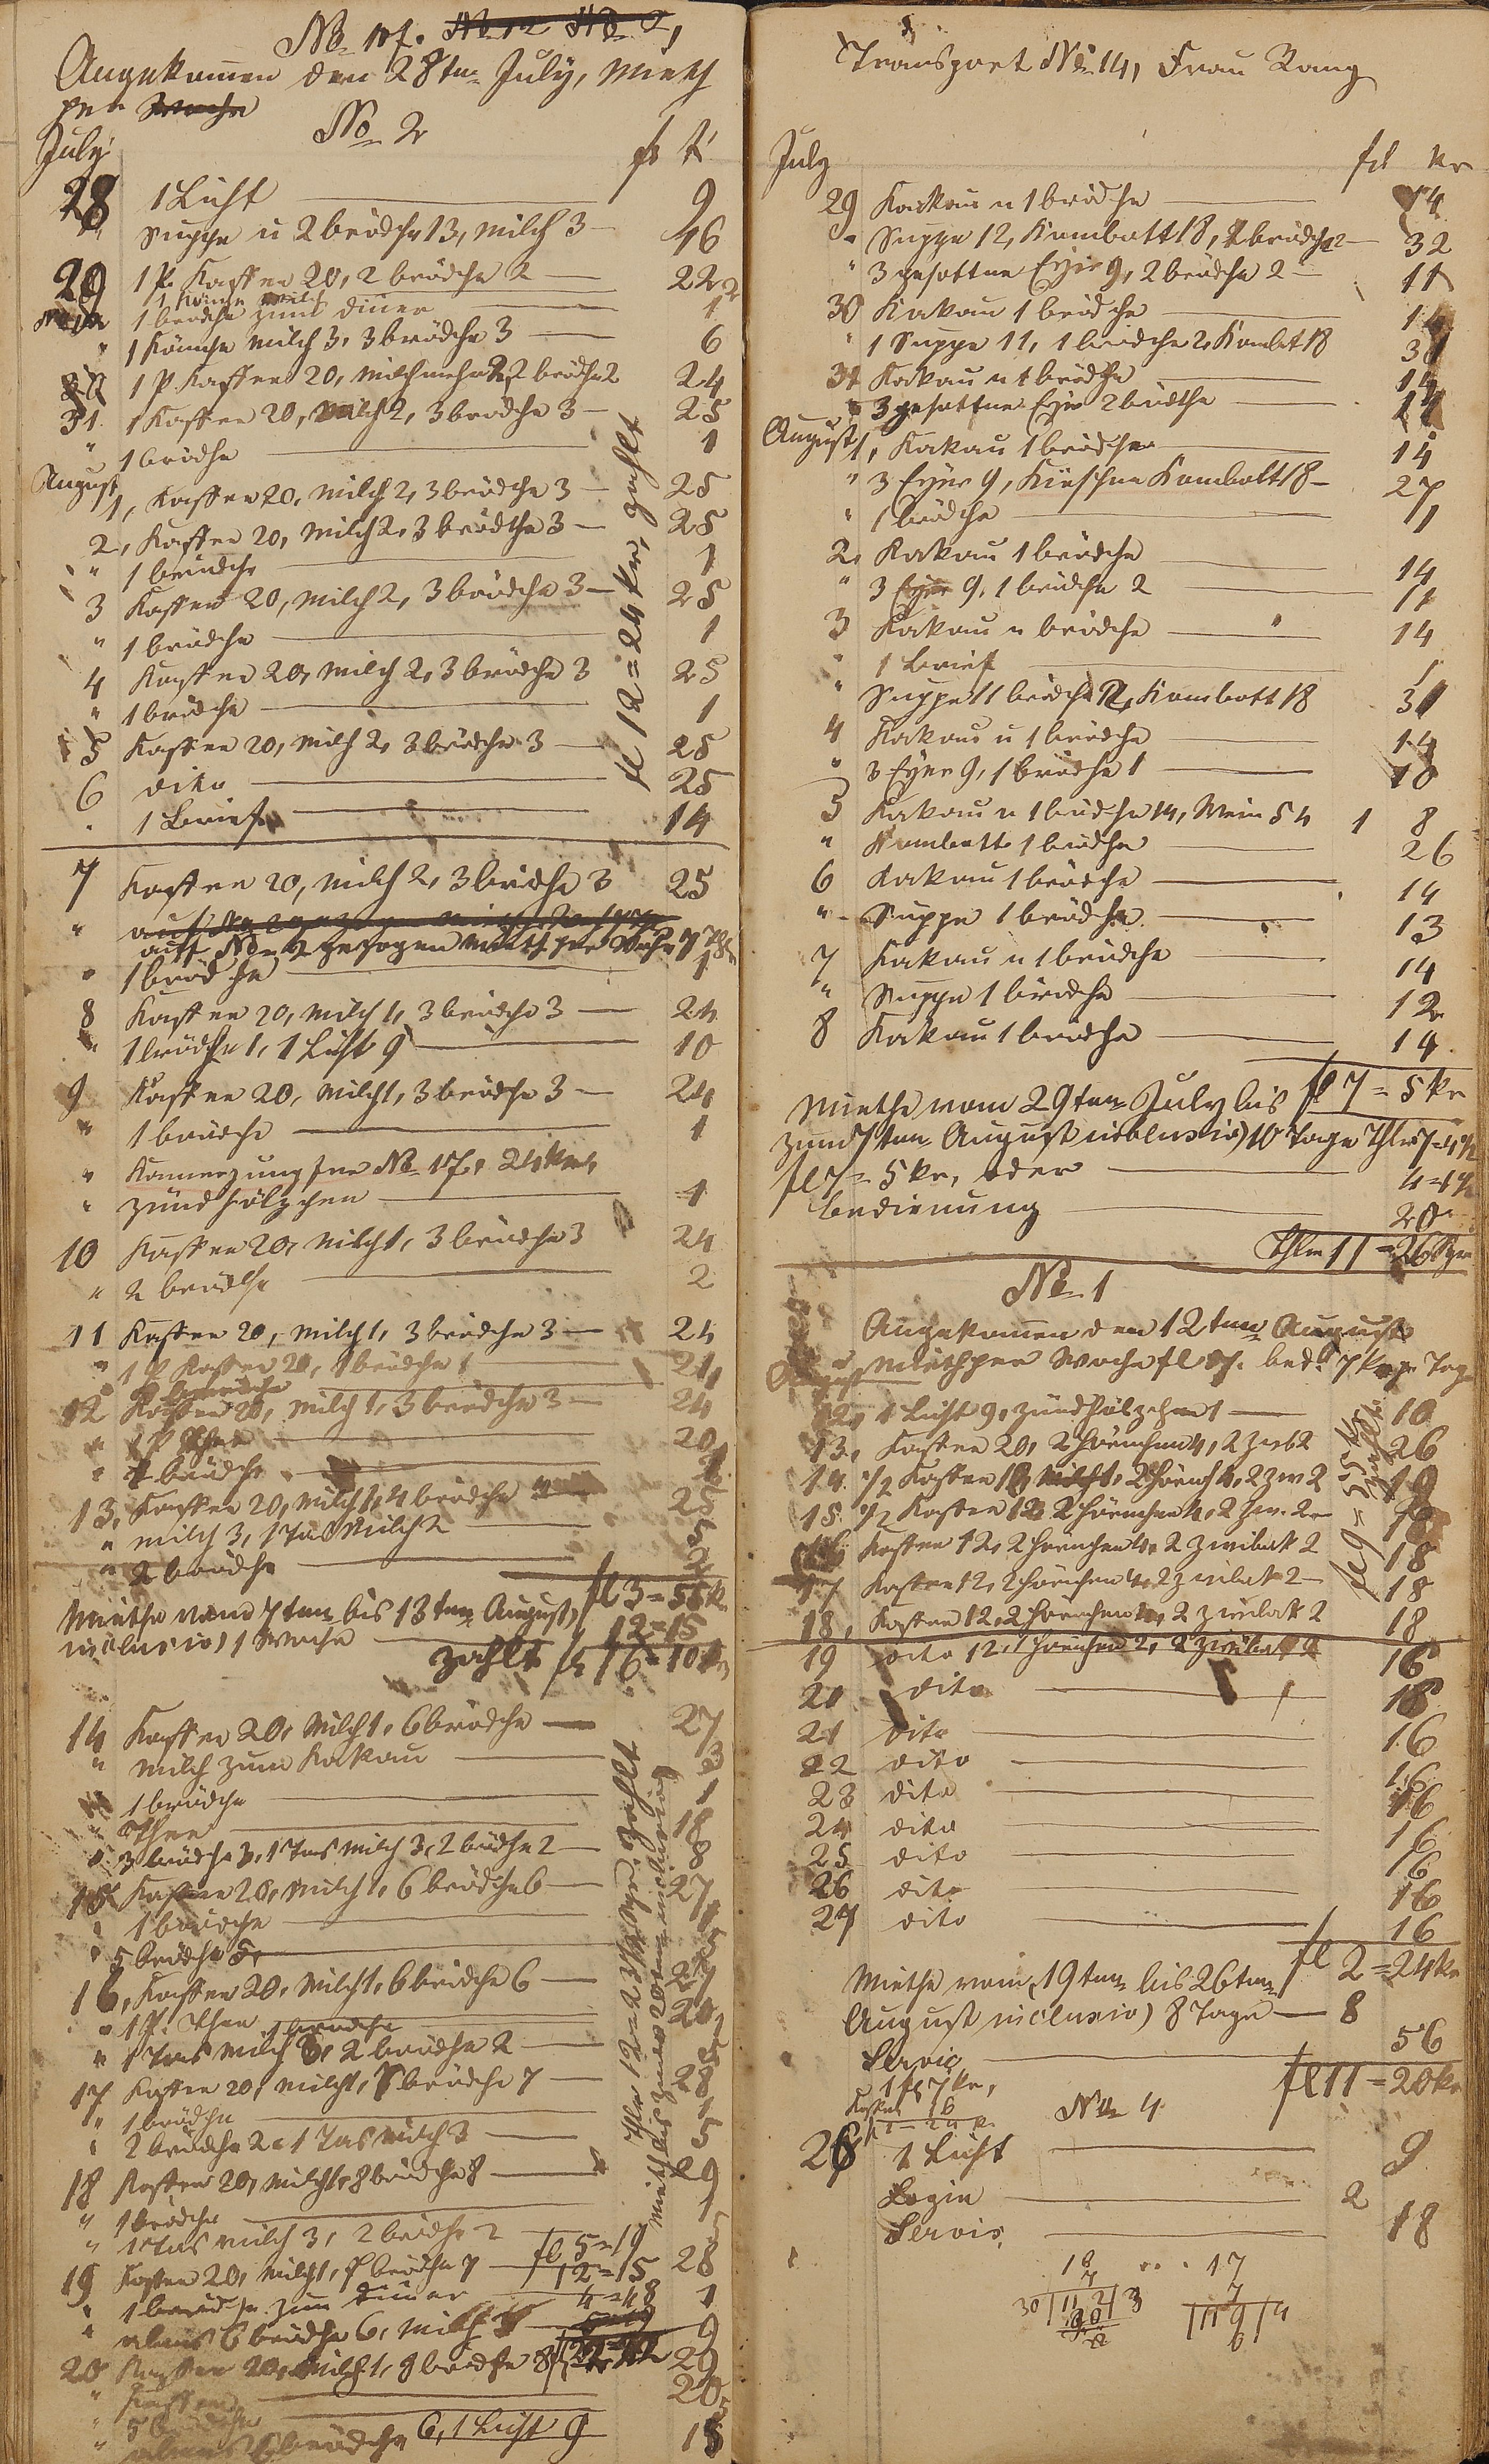 No 17. No 12 No 2,
Angekomen den 28ten July, Mieth
per Woche
No 2
July fl kr
28 1 Licht 9
" Suppe u 2 brödche 13, Milch 3 16
29 1 P. Kaffee 20, 2 brödche 2 22
1 Könche Milch 2
1 brödche zum Diner 1
" 1 Könche Milch 3, 3 brödche 3 6
30 1 P Kaffee 20, Milch mehr 2, 2 brödche 2 24
31. 1 Kaffee 20, Milch 2, 3 brödche 3 25
" 1 brödche 1
August
1, Kaffee 20, Milch 2, 3 brödche 3 25
2, Kaffee 20, Milch 2, 3 brödche 3 25
" 1 brödche 1
3 Kaffee 20, Milch 2, 3 brödche 3 25
" 1 brödche 1
4 Kaffee 20, Milch 2, 3 brödche 3 25
" 1 brödche 1
5 Kaffee 20, Milch 2, 3 brödche 3 25
6 dito 25
" 1 Brief 14
fl 12 = 24 kr, zahlt
7 Kaffee 20, Milch 2, 3 brödche 3 25
" auf No 2 gezogen Mieth per Woche 7 Thlr
" 1 brödche 1
8 Kaffee 20, Milch 1, 3 brödche 3 24
" 1 brödche 1, 1 Licht 9 10
9 Kaffee 20, Milch 1, 3 brödche 3 24
" 1 brödche 1
" Kamerjungfer No 17, 24 kr,
" Zündhölzchen 1
10 Kaffee 20, Milch 1, 3 brödche 3 24
" 2 brödche 2
11 Kaffee 20, Milch 1, 3 brödche 3 24
" 1 P Kaffee 20, 1 brödche 1 21
12 Kaffee 20, Milch 1, 3 brödche 3 24
" 1 P Thee 20
" brödche
13, Kaffee 20, Milch 1, 4 brödche 25
" Milch 3, 1 Tas Milch 2 5
" 2 brödche 2
fl 3 = 55 kr
Miethe vom 7ten bis 13ten August, 12 = 15
inclusiv) 1 Woche
zahlt fl 16 = 10 kr
14 Kaffee 20, Milch 1, 6 brödche 27
" Milch zum Kakau 3
" 1 brödche 1
" Thee 18
" 3 brödche 3, 1 Tas Milch 3, 2 brödche 2 8
15 Kaffee 20, Milch 1, 6 brödche 6 27
" 1 brödche 1
" 5 brödche 5, 5
16, Kaffee 20, Milch 1, 6 brödche 6 27
" 1 P. Thee 20
1 brödche 1
" 1 Tas Milch 3, 2 brödche 2 5
17 Kaffee 20, Milch 1, brödche 7 28
" 1 brödche 1
" 2 brödche 2, 1 Tas Milch 3 5
18 Kaffee 20, Milch 1, 8 brödche 8 29
" 1 brödche 1
" 1 Tas Milch 3, 2 brödche 2 5
fl 5 = 19
19 Kaffee 20, Milch 1, 7 brödche 7 28
12 = 15
" 1 brödche zum Diner 1
4 = 48
" abens 6 brödche 6, Milch 3 9
20 Kaffee 20, Milch 1, 8 brödche 8 29
" 20
" 5 brödche 5
" abens 6 brödche 6, 1 Licht 9 15
zahlt
Transport No 14, Frau Rang
July fl kr
29 Kakau u 1 brödche 14
" Suppe 12, Kombott 18, 2 brödche 2 32
" 3 gesottne Eyer 9, 2 brödche 2 11
30 Kakau 1 brödche 14
" 1 Suppe 11, 1 brödche 2, Kombot 18 31
31 Kakau u 1 brödche 14
" 3 gesottne Eyer 2 brödche 11
August 1, Kakau 1 brödche 14
" 3 Eyer 9, Kirschen Kombott 18 27
" 1 brödche 1
2, Kakau 1 brödche 14
" 3 Eyer 9, 1 brödche 2 11
3 Kakau u brödche 14
" 1 Brief 1
" Suppe 11 brödche 2, Kombott 18 31
4 Kakau u 1 brödche 14
" 3 Eyer 9, 1 brödche 1 10
5 Kakau u 1 brödche 14, Wein 54 1 8
" Kombott 1 brödche 26
6 Kakau 1 brödche 14
" Suppe 1 brödche 13
7 Kakau u 1 brödche 14
" Suppe 1 brödche 12
8 Kakau 1 brödche 14
fl 7 = 5 kr
Miethe vom 29ten July bis
zum 7ten August incblusiv) 10 Tage Thlr 7 = 4 1/2
fl 7 = 5 kr, oder 4 = 1 1/2
bedienung 20
Thlr 11 = 26 Sgr
No 1
Angekomen den 12ten August
Mieth per Woche fl 7. bed. 7 kr pr Tag
12, 1 Licht 9, Zündhölzchen 1 10
13, Kaffee 20, 2 Hörnchen 4, 2 Zwb 2 26
14. 1/2 Kaffee 12 Milch 1, 2 Hörnch 4, 2 Zw 2 19
15. 1/2 Kaffee 12 2 Hörnchen 4, 2 Zw. 2 18
16 Kaffee 12, 2 Hörnchen 4, 2 Zwibak 2 18
17 Kaffee 12, 2 Hörnchen 4, 2 Zwibak 2 18
18, Kaffee 12, 2 Hörnchen 4, 2 Zwibak 2 18
fl 9 = 35 kr zahlt
19 dito 12, 1 Hörnchen 2, 2 Zwibak 2 16
20 dito 16
21 dito 16
22 dito 16
23 dito 16
24 dito 16
25 dito 16
26 dito 16
27 dito 16
fl 2 = 24 kr
Miethe vom 19ten bis 26ten
August inclusiv) 8 Tage 8
Servic 56
fl 11 = 20 kr
1 fl 7 kr,
Kaffee 16
No 4
26 1 Licht 9
Logie 2
Servis, 18